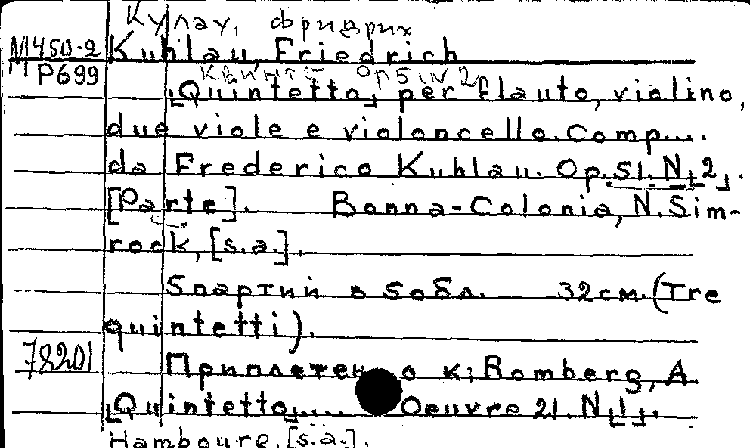 Кулау, Фридрих
М450-2 Kuhlau, Friedrich
МР699 Квинтет Ор51N2
„Quintetto„ per flauto, violino,
due viole e violoncello. Comp....
da Frederico Kuhlau. Op.51.N„2„.
[Parte]. Bonna-Colonia, N.Sim-
rock, [s.a.].
5партий в 5обл. 32см. (Tre
quintetti).
78201 Приплетено к: Romberg, A
„Quintetto„.... Oeuvre 21. N„1„.
Hambourg, [s.a.].